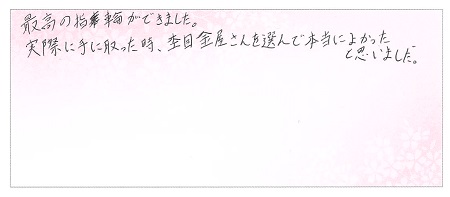 最高の指輪ができました。
実際に手に取った時、杢目金屋さんを選んで本当によかった
と思いました。